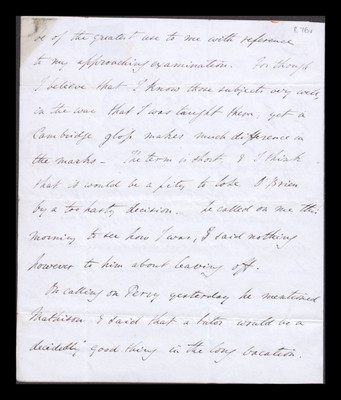 be of the greatest use to me with reference
to my approaching examination. For though
I believe that I know those subjects very well,
in the way that I was taught them, yet a
Cambridge gloss makes much difference in
the marks – The term is short, & I think
that it would be a pity to lose O'Brien
by a too hasty decision. – he called on me this
morning to see how I was, I said nothing
however to him about leaving off.
On calling on Percy yesterday he mentioned
Mathison & said that a tutor would be a
decidedly good thing in the long vacation.